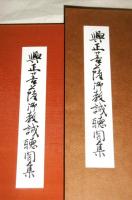 興正菩薩御教誡聽聞集
興正菩薩御教誡聽聞集